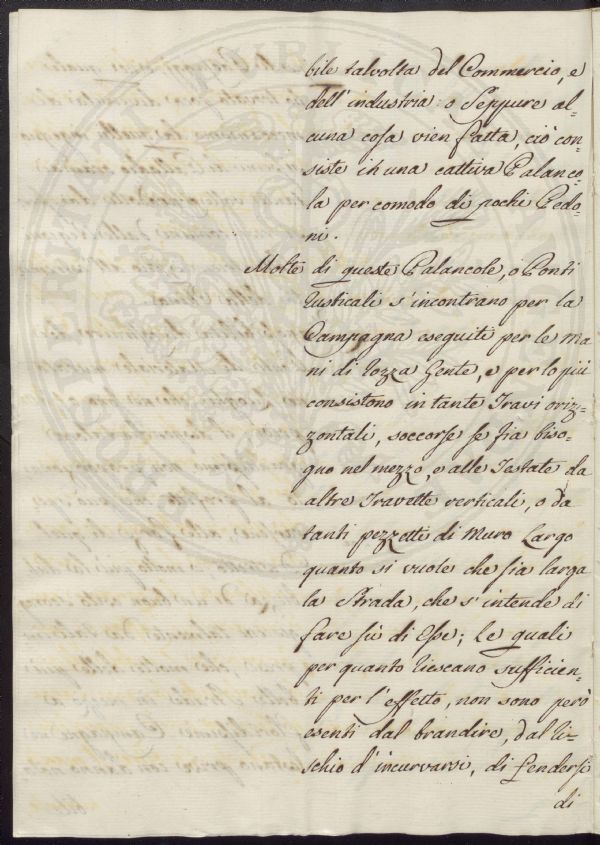 bile talvolta del Commercio, e
dell'industria: o seppure al-
cuna cosa vien fatta, ciò con-
siste in una cattiva Palanco-
la per comodo di pochi Pedo-
ni.
Molte di queste Palancole, o Ponti
rusticali s'incontrano per la
Campagna eseguiti per le ma
ni di rozza Gente, e per lo più
consistono in tante Travi oriz-
zontali, soccorse se sia biso-
gno nel mezzo, e alle Testate da
altre Travette verticali, o da
tanti pezzetti di Muro largo
quanto si vuole che sia larga
la Strada, che s'intende di
fare sù di Esse; Le quali
per quanto riescano sufficien-
ti per l'effetto, non sono però
esenti dal brandire, dal ri-
schio d'incurvarsi, di fendersi
di